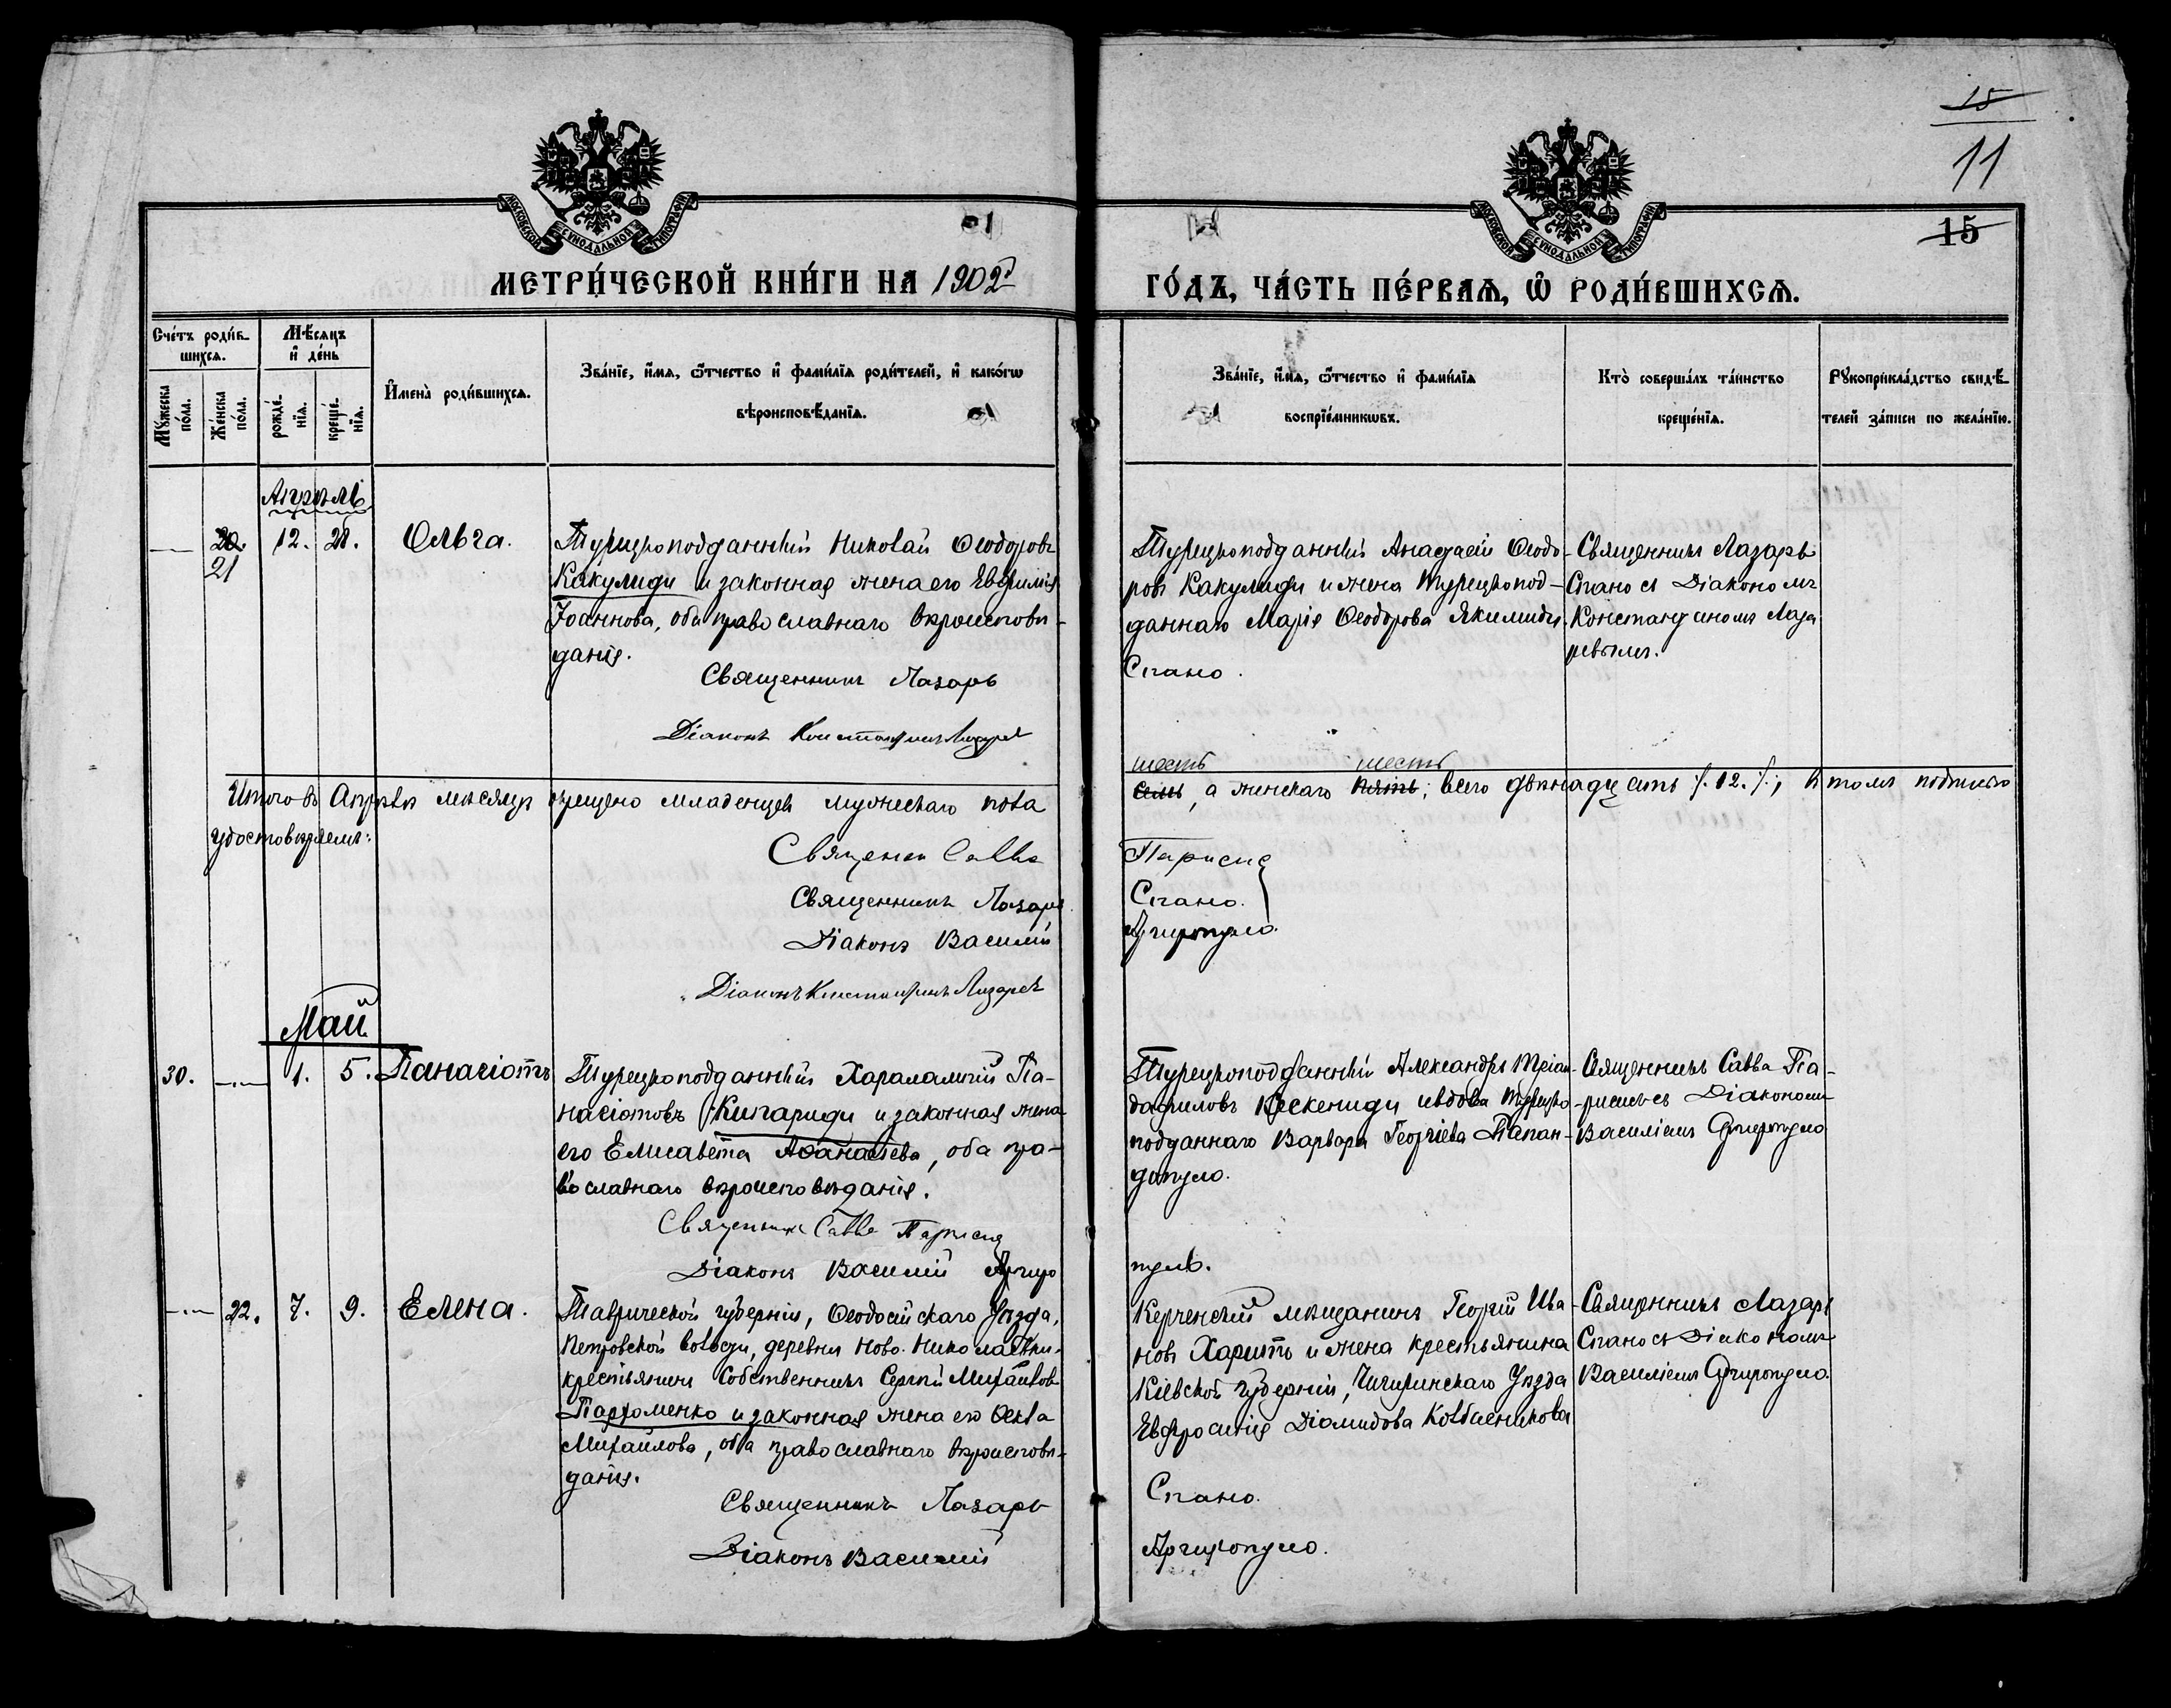 15
11
МОСКОВСКОЙ СѴНОДАЛЬНОЙ ТИПОГРАФІИ
МОСКОВСКОЙ СѴНОДАЛЬНОЙ ТИПОГРАФІИ
15
МЕТРИ́ЧЕСКОЙ КНИ́ГИ НА 1902й
ГО́ДЪ, ЧА́СТЬ ПЕ́РВАѦ, Ѡ҆ РОДИ́ВШИХСѦ.
Сче́тъ роди́в-
шихсѧ.
Му́жеска по́ла.
Же́нска по́ла.
Мѣ́сѧцъ
и҆ де́нь
рожде́нїѧ.
креще́нїѧ.
И҆мена̀ роди́вшихсѧ.
Зва́нїе, и҆́мѧ, ѻ҆́тчество и҆ фами́лїѧ роди́телей, и҆ како́гѡ
вѣроисповѣ́данїѧ.
Зва́нїе, и҆́мѧ, ѻ҆́тчество и҆ фами́лїѧ
воспрїе́мникѡвъ.
Кто̀ соверша́лъ та́инство
креще́нїѧ.
Рꙋкоприкла́дство свидѣ́-
телей за́писи по жела́нїю.
Апрѣль
— 20. 12. 28. Ольга.
21
Турецкоподданный Николай Ѳеодоровъ
Какулиди и законная жена его Евфимія
Іоаннова, оба православнаго вѣроисповѣ-
данія.
Священникъ Лазарь
Діаконъ Константинъ Лазарев
Турецкоподданный Анастасій Ѳеодо-
ровъ Какулиди и жена турецкопод-
даннаго Марія Ѳеодорова Якимиди.
Спано.
Священникъ Лазарь
Спано съ Діакономъ
Константиномъ Лаза
ревымъ.
шесть шесть
Итого въ Апрѣлѣ мѣсяцѣ крещено младенцевъ мужескаго пола семь, а женскаго пять; всего двѣнадцать /.12./., въ томъ подписью
удостовѣряемъ:
Священик Савва Парисис
Священникъ Лазарь Спано.
Діаконъ Василій Аргиропуло.
Діаконъ Константинъ Лазарев
Май
30. — 1. 5. Панагіотъ
Турецкоподданный Харалампій Па-
нагіотовъ Кипариди и законная жена
его Елисавета Аѳанасіева, оба пра-
вославнаго вѣроисповѣданія.
Священникъ Савва Парисис
Діаконъ Василій Аргиро
пуло.
Турецкоподданный Александръ Тріан-
дафиловъ Кескениди и вдова турецко-
подданнаго Варвара Георгіева Папан-
допуло.
Священникъ Савва Па-
рисисъ съ Діакономъ
Василіемъ Аргиропуло
— 22. 7. 9. Елена.
Таврической губерніи, Ѳеодосійскаго уѣзда,
Петровской волости, деревни Ново-Николаевки,
крестьянинъ собственникъ Сергѣй Михайловъ
Пархоменко и законная жена его Ѳекла
Михайлова, оба православнаго вѣроисповѣ-
данія.
Священникъ Лазарь
Діаконъ Василій
Керченскій мѣщанинъ Георгій Ива-
новъ Харитъ и жена крестьянина
Кіевской губерніи, Чигиринскаго уѣзда
Евфросинія Діомидова Колбасникова
Спано.
Аргиропуло.
Священникъ Лазарь
Спано съ Діакономъ
Василіемъ Аргиропуло.